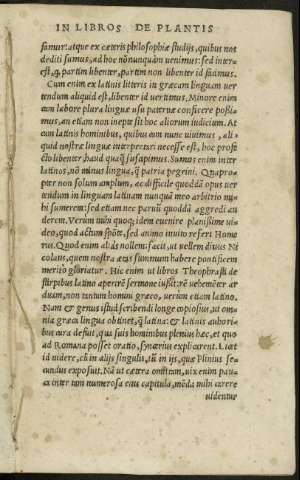 IN LIBROS DE PLANTIS
samur: atque ex cæteris philosophiæ studijs, quibus nos
dediti sumus, ad hoc nõnunquàm uenimus: sed interu
est, q̃ partim libenter, partim non libenter id fecimus.
Cum enim ex latinis litteris in græcam linguam uer
tendum aliquid est, libenter id uertimus. Minore enim
cum labore plura lingua usu paternæ conficere possu
mus, an etiam non inepte sit hoc aliorum iudicium. At
cum latinis hominibus, quibuscum nunc uiuimus, ali
quid nostræ linguæ interpretari necesse est, hoc profe
cto libenter haud quaq̃ suscipimus. Sumus enim inter
latinos, nõ minus lingua, q̃ patria peregrini. Quapro
pter non solum amplum, ac difficile quoddã opus uer
tendum in linguam latinam nunquã meo arbitrio mi
hi sumerem: sed etiam nec paruũ quoddã aggredi au
derem. Verum mihi quoq; idem euenire planissime ui
deo, quod actum spõte, sed animo inuito refert Home
rus. Quod enim aliàs nollem: facit, ut uellem diuus Ni
colaus, quem nostra ætas summum habere pontificem
merito gloriatur. Hic enim ut libros Theophrasti de
stirpibus latino aperirẽ sermone iussit: rẽ uehemẽter ar
duam, non tantum homini græco, uerum etiam latino.
Nam & genus istud scribendi longe copiosius, ut om
nia græca lingua obtinet, q̃ latina: & latinis authori
bus cura defuit, qui suis hominibus plenius hæc, et quo
ad Romana posset oratio, syncerius explicarent. Licet
id uidere, cũ in alijs singulis, tũ in ijs, quæ Plinius se
cundus exposuit. Nã ut cætera omittam, uix enim pau
ca inter tam numerosa eius capitula, mẽda mihi carere
uidentur